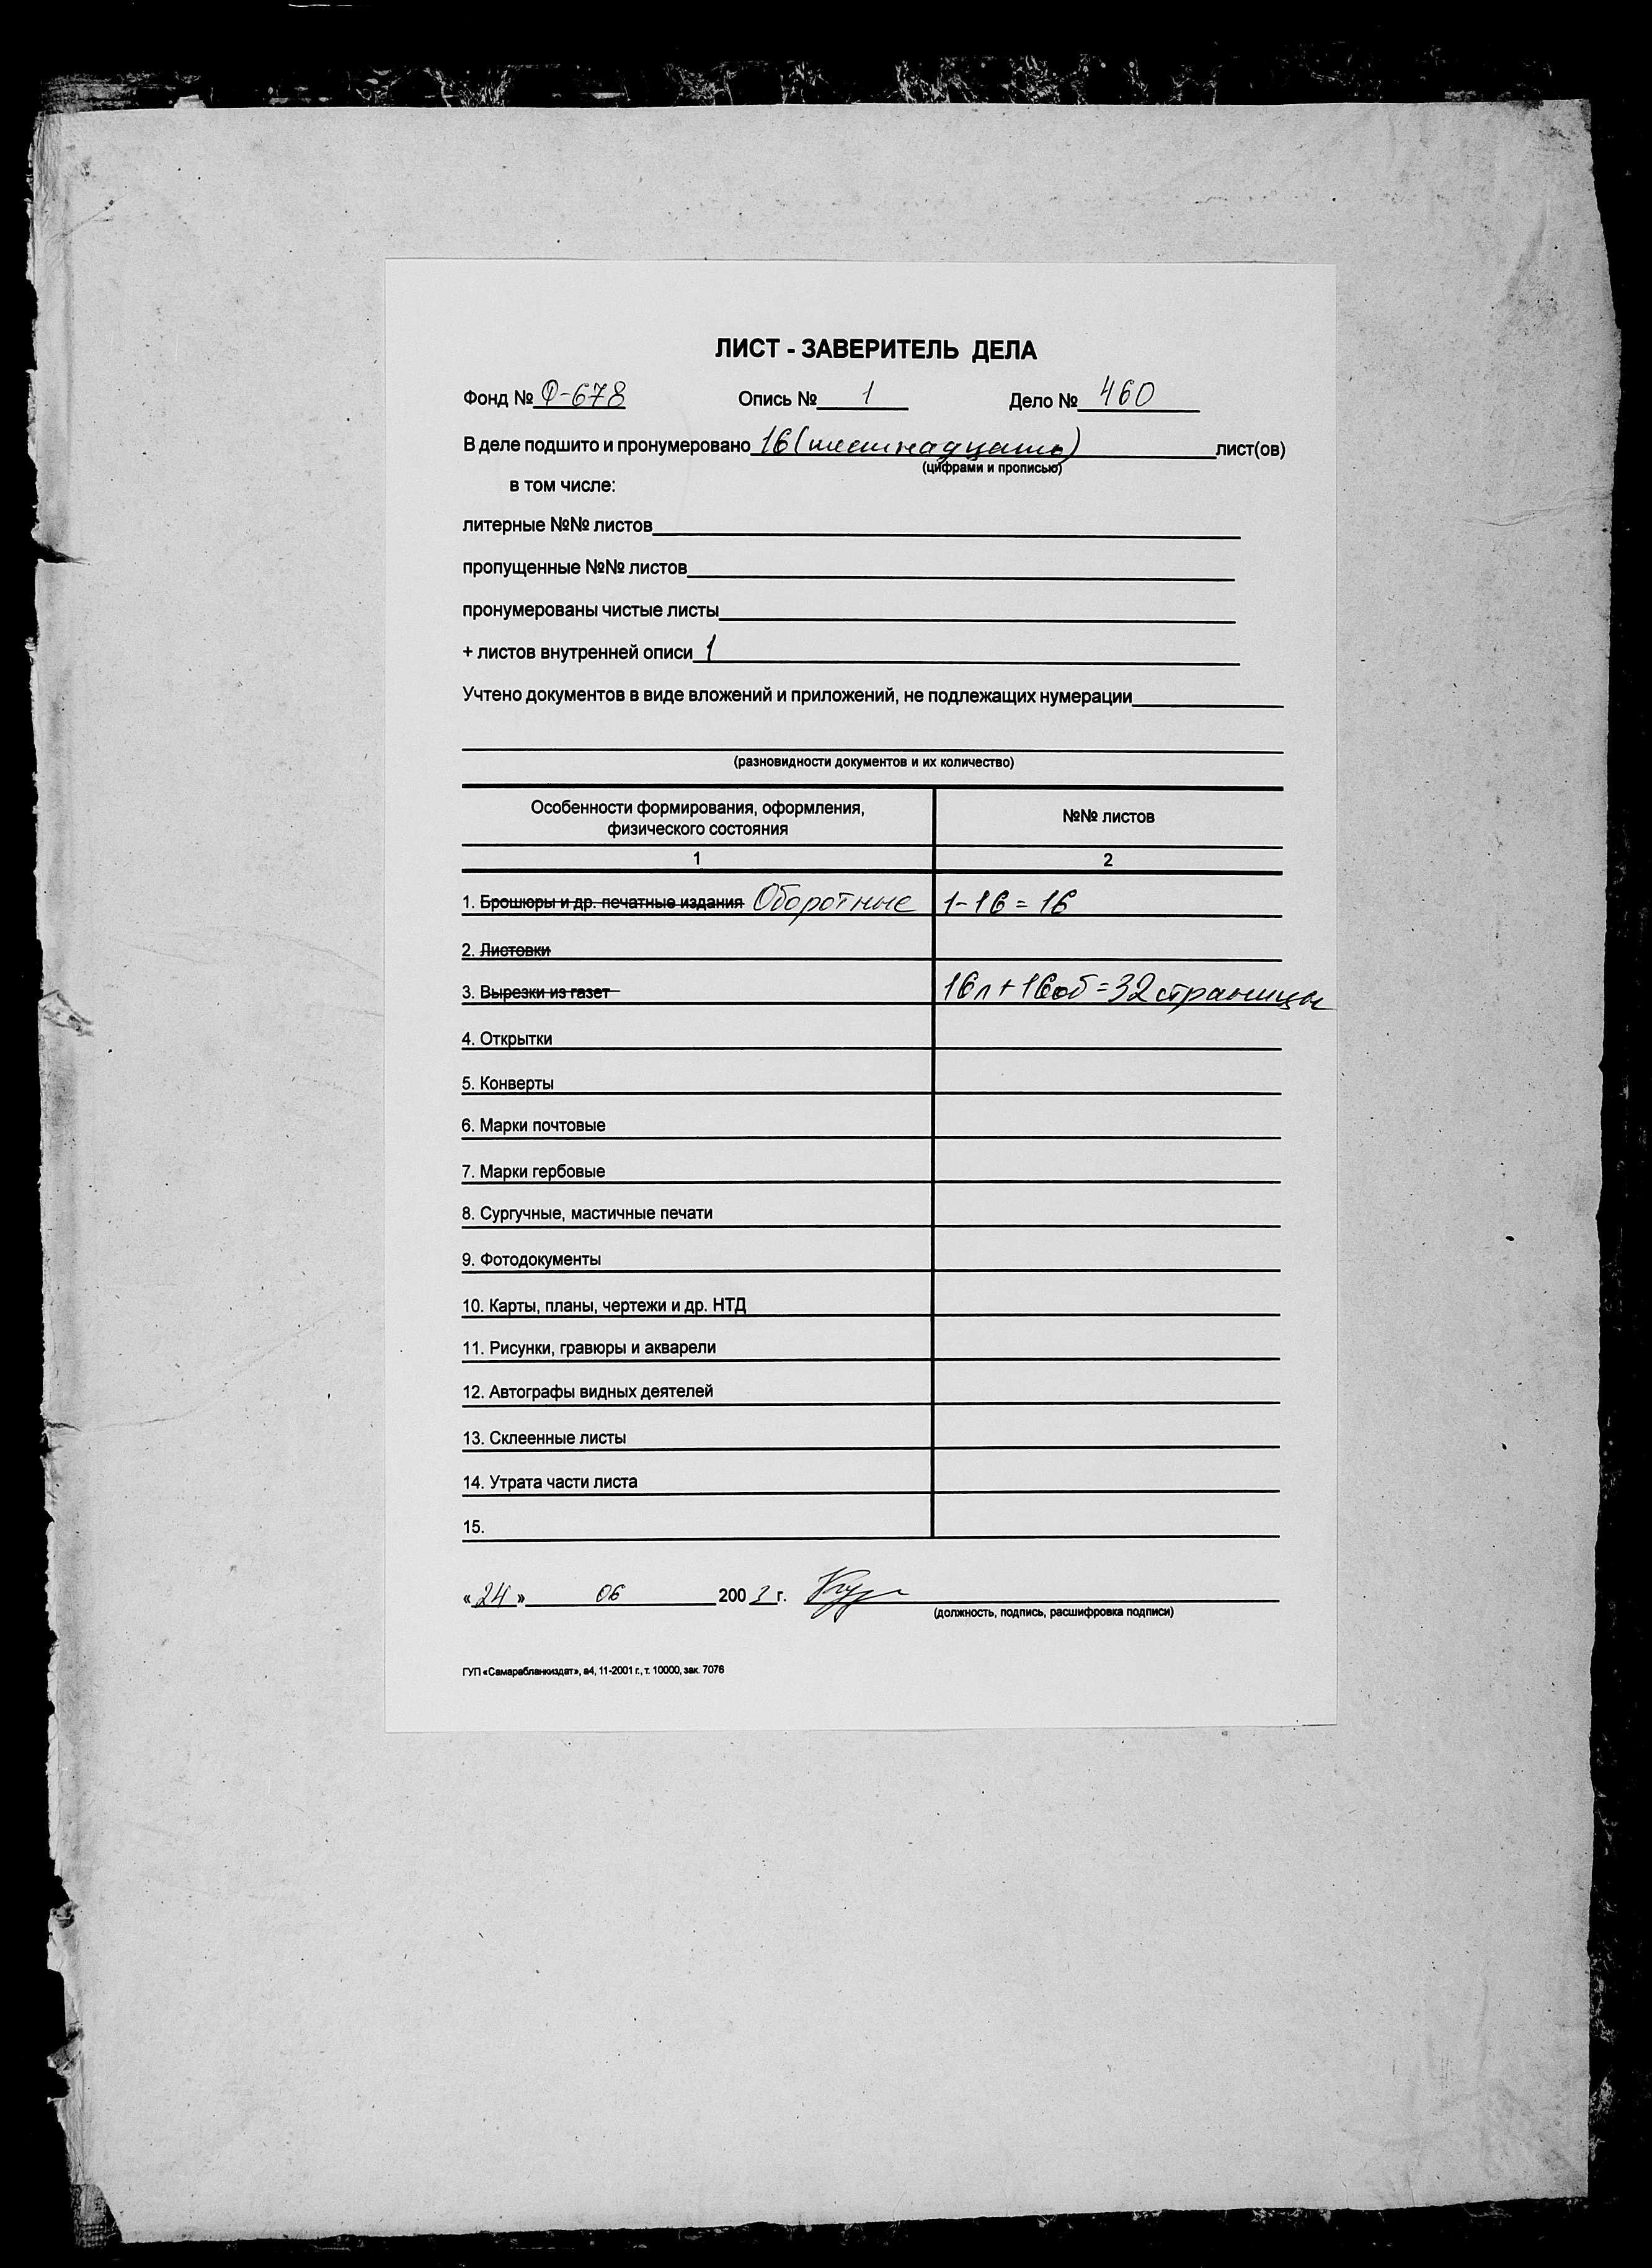 ЛИСТ - ЗАВЕРИТЕЛЬ ДЕЛА
Фонд № Ф-678 Опись № 1 Дело № 460
В деле подшито и пронумеровано 16 (шестнадцать) лист(ов)
(цифрами и прописью)
в том числе:
литерные №№ листов
пропущенные №№ листов
пронумерованы чистые листы
+ листов внутренней описи 1
Учтено документов в виде вложений и приложений, не подлежащих нумерации
(разновидности документов и их количество)
Особенности формирования, оформления, №№ листов
физического состояния
1 2
1. Брошюры и др. печатные издания Оборотные 1-16 = 16
2. Листовки
3. Вырезки из газет 16л + 16об = 32 страницы
4. Открытки
5. Конверты
6. Марки почтовые
7. Марки гербовые
8. Сургучные, мастичные печати
9. Фотодокументы
10. Карты, планы, чертежи и др. НТД
11. Рисунки, гравюры и акварели
12. Автографы видных деятелей
13. Склеенные листы
14. Утрата части листа
15.
« 24 » 06 2003 г.
(должность, подпись, расшифровка подписи)
ГУП «Самарабланкиздат», а4, 11-2001 г., т. 10000, зак. 7076